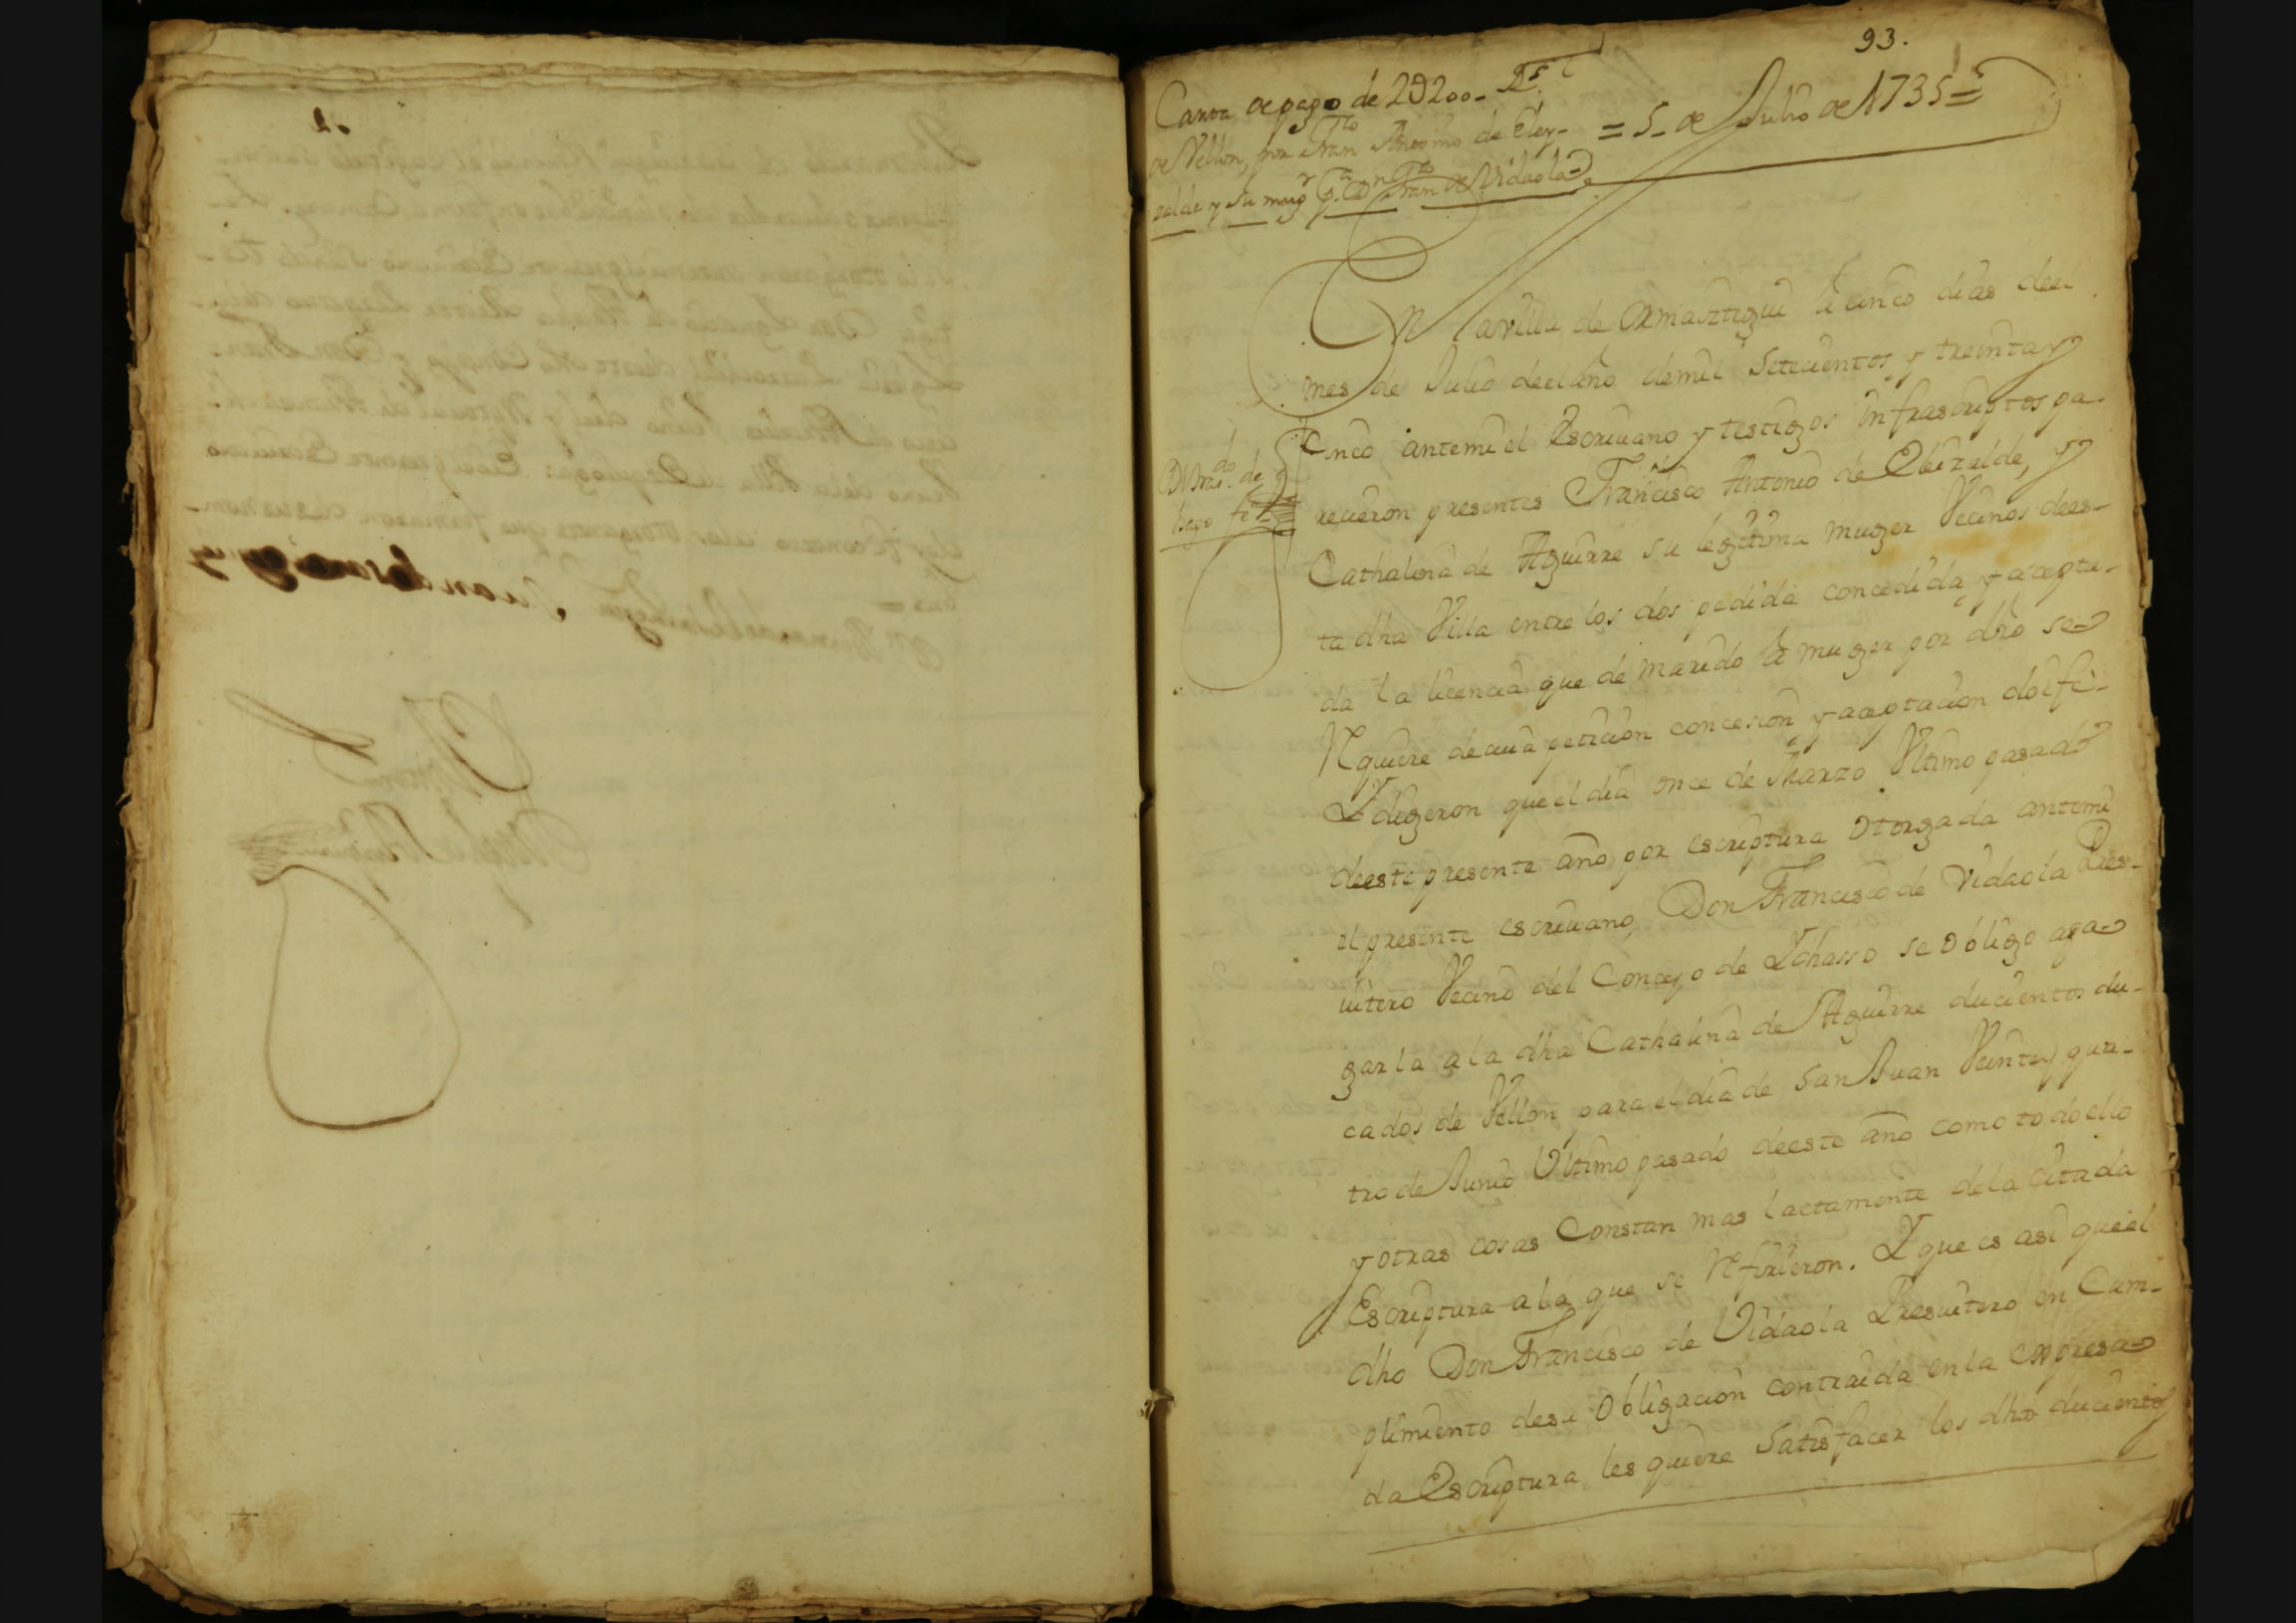 93.
Carta de pago de 2 U 200 - Rs.
de Vellon, por Fran.co Antonio de Eley-
zalde y su mug.r p.a D.n Fran.co de Vidaola
= 5 - de Julio de 1735 =
En la villa de Ormaiztegui à cinco dias deel
mes de Julio deel año demil Setecientos y treinta y
cinco antemi el Escriuano y testigos infrascriptos pa-
recieron presentes Francisco Antonio de Eleizalde, y
Cathalina de Aguirre su legitima muger Vecinos dees-
ta dha Villa entre los dos pedida concedida, y acepta-
da la licencia que de marido à muger por dro se
Requiere de cuia peticion concesion y aceptacion doi fe-
Y digeron que el dia once de Marzo Vltimo pasado
deeste presente año por escriptura otorgada antemi
el presente escriuano, Don Francisco de Vidaola Pres-
uitero Vecino del Concejo de Ychasso se obligo apa-
garla a la dha Cathalina de Aguirre ducientos du-
cados de Vellon para el dia de San Juan Veinte y qua-
tro de Junio Vltimo pasado deeste año como todo ello
y otras cosas Constan mas lactamente dela Citada
Escriptura ala que se Refirieron. Y que es asi que el
dho Don Francisco de Vidaola Presuitero en Cum-
plimiento desu obligacion contraida en la expresa-
da Escriptura les quiere Satisfacer los dhos ducientos